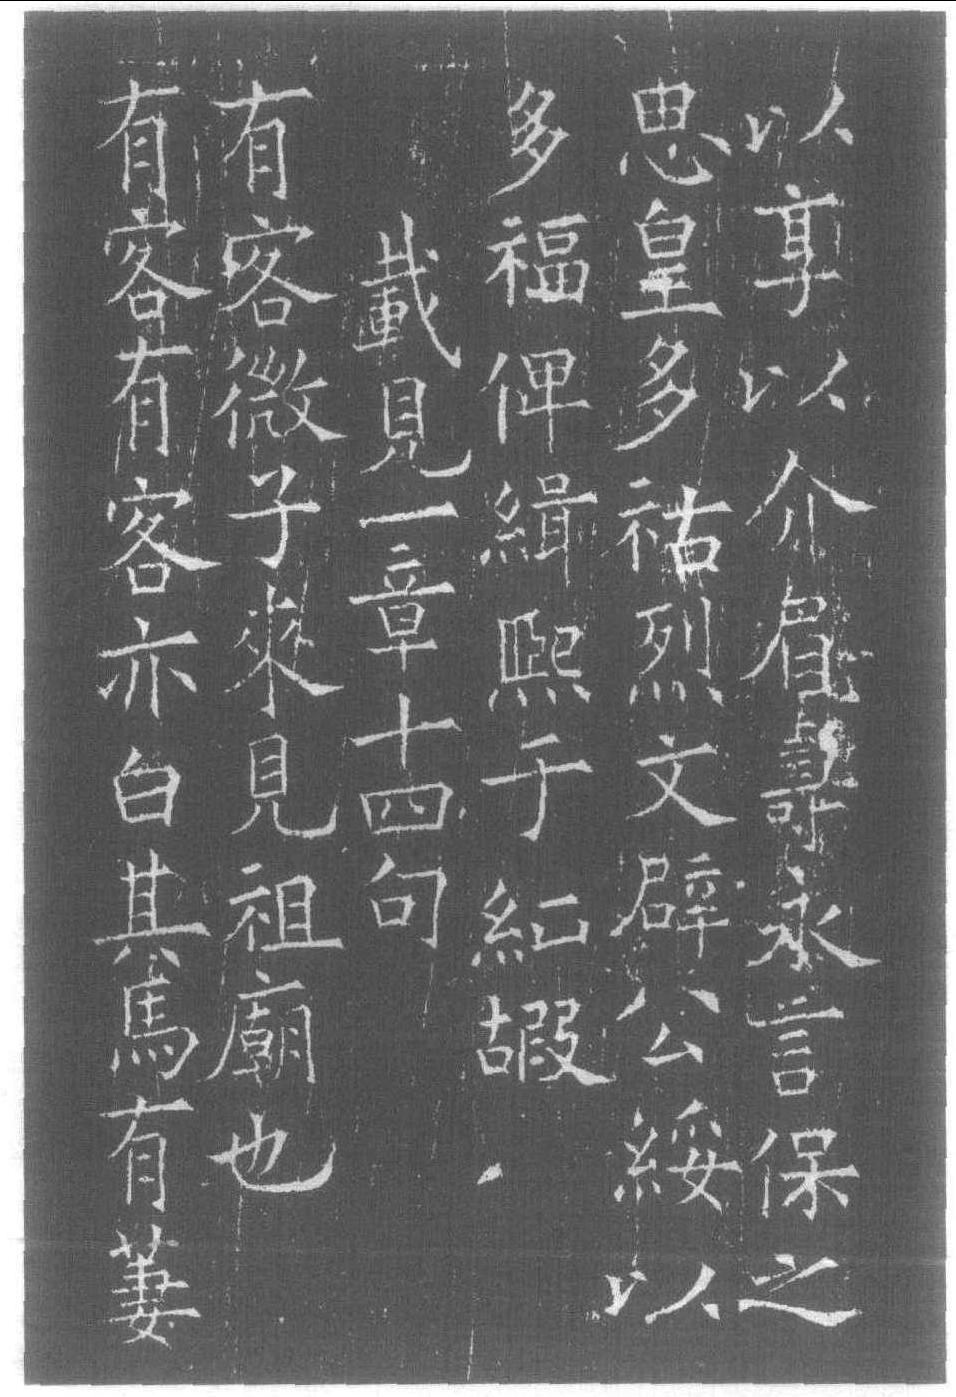 以享以介眉壽永言保之
思皇多祜烈文辟公綏以
多福俾緝熙于純嘏
載見一章十四句
有客微子來見祖廟也
有客有客亦白其馬有萋